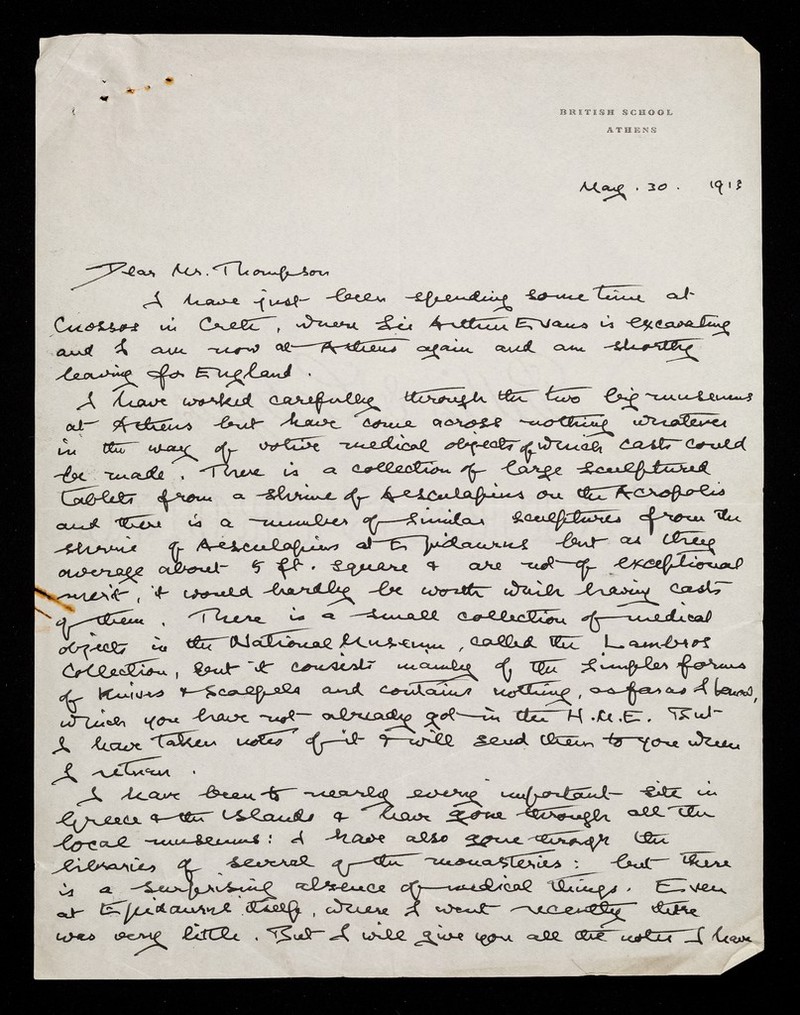 BRITISH SCHOOL
ATHENS
May. 30. 1913
Dear Mr. Thompson
I have just been spending some time at
Cnossos in Crete, where Sir Arthur Evans is excavating
and I am now at Athens again and am shortly
leaving for England.
I have worked carefully through the two big museums
at Athens but have come across nothing whatever
in the way of votive medical objects of which casts could
be made. There is a collection of large sculptured
tablets from a shrine of Aesculapius on the Acropolis
and there is a number of similar sculptures from the
shrine of Aesculapius at Epidaurus but as they
average about 5 ft. square & are not of exceptional
merit, it would hardly be worth while having casts
of them. There is a small collection of medical
objects in the National Museum, called the Lambros
Collection, but it consists mainly of the simpler forms
of Knives & Scalpels and contains nothing, as far as I know,
which you have not already got in the H.M.E. But
I have taken notes of it & will send them to you when
I return.
I have been to nearly every important site in
Greece & the Islands & have gone through all the
local museums: I have also gone through the
libraries of several of the monasteries: but there
is a surprising absence of medical things. Even
at Epidaurus itself, where I went recently there
was very little. But I will give you all the notes I have